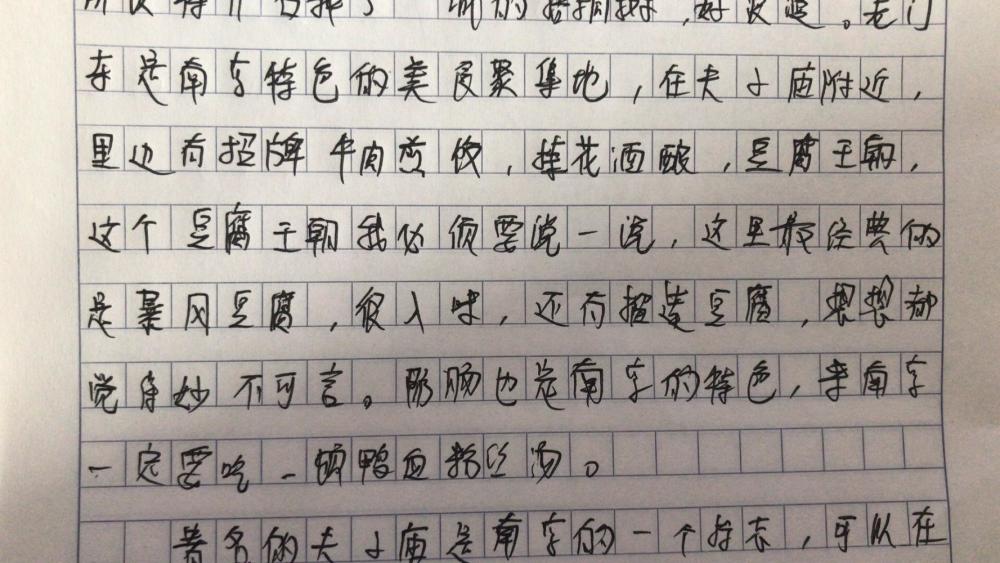 。老门
东是南京特色的美食聚集地，在夫子庙附近，
里边有招牌牛肉煎饺，桂花酒酿，豆腐王朝，
这个豆腐王朝我必须要说一说，这里最经典的
是暴风豆腐，很入味，还有酱豆腐，想想都
觉得妙不可言。鸭肠也是南京的特色，来南京
一定要吃一顿鸭血粉丝汤。
著名的夫子庙是南京的一个标志，可以在